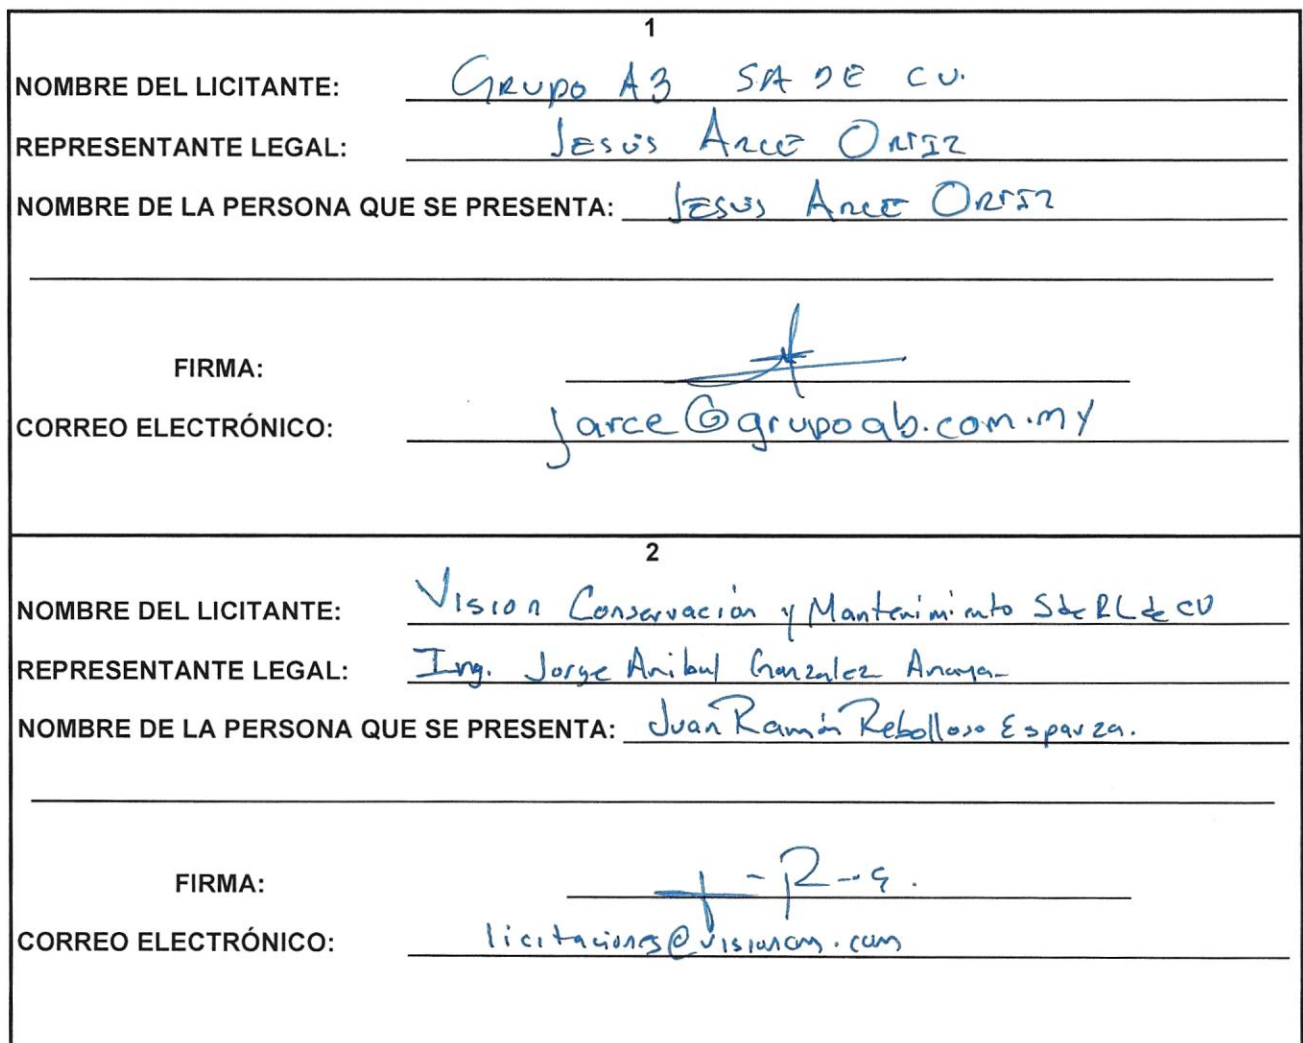 1
NOMBRE DEL LICITANTE: GRUPO A3 SA DE CV.
REPRESENTANTE LEGAL: JESÚS ARCE ORTIZ
NOMBRE DE LA PERSONA QUE SE PRESENTA: JESUS ARCE ORTIZ
FIRMA:
CORREO ELECTRÓNICO: jarce@grupoab.com.my
2
NOMBRE DEL LICITANTE: Vision Conservación y Mantenimiento S de RL de CV
REPRESENTANTE LEGAL: Ing. Jorge Anibal Gonzalez Anaya
NOMBRE DE LA PERSONA QUE SE PRESENTA: Juan Ramón Rebolloso Esparza.
FIRMA:
CORREO ELECTRÓNICO: licitaciones@visioncm.com